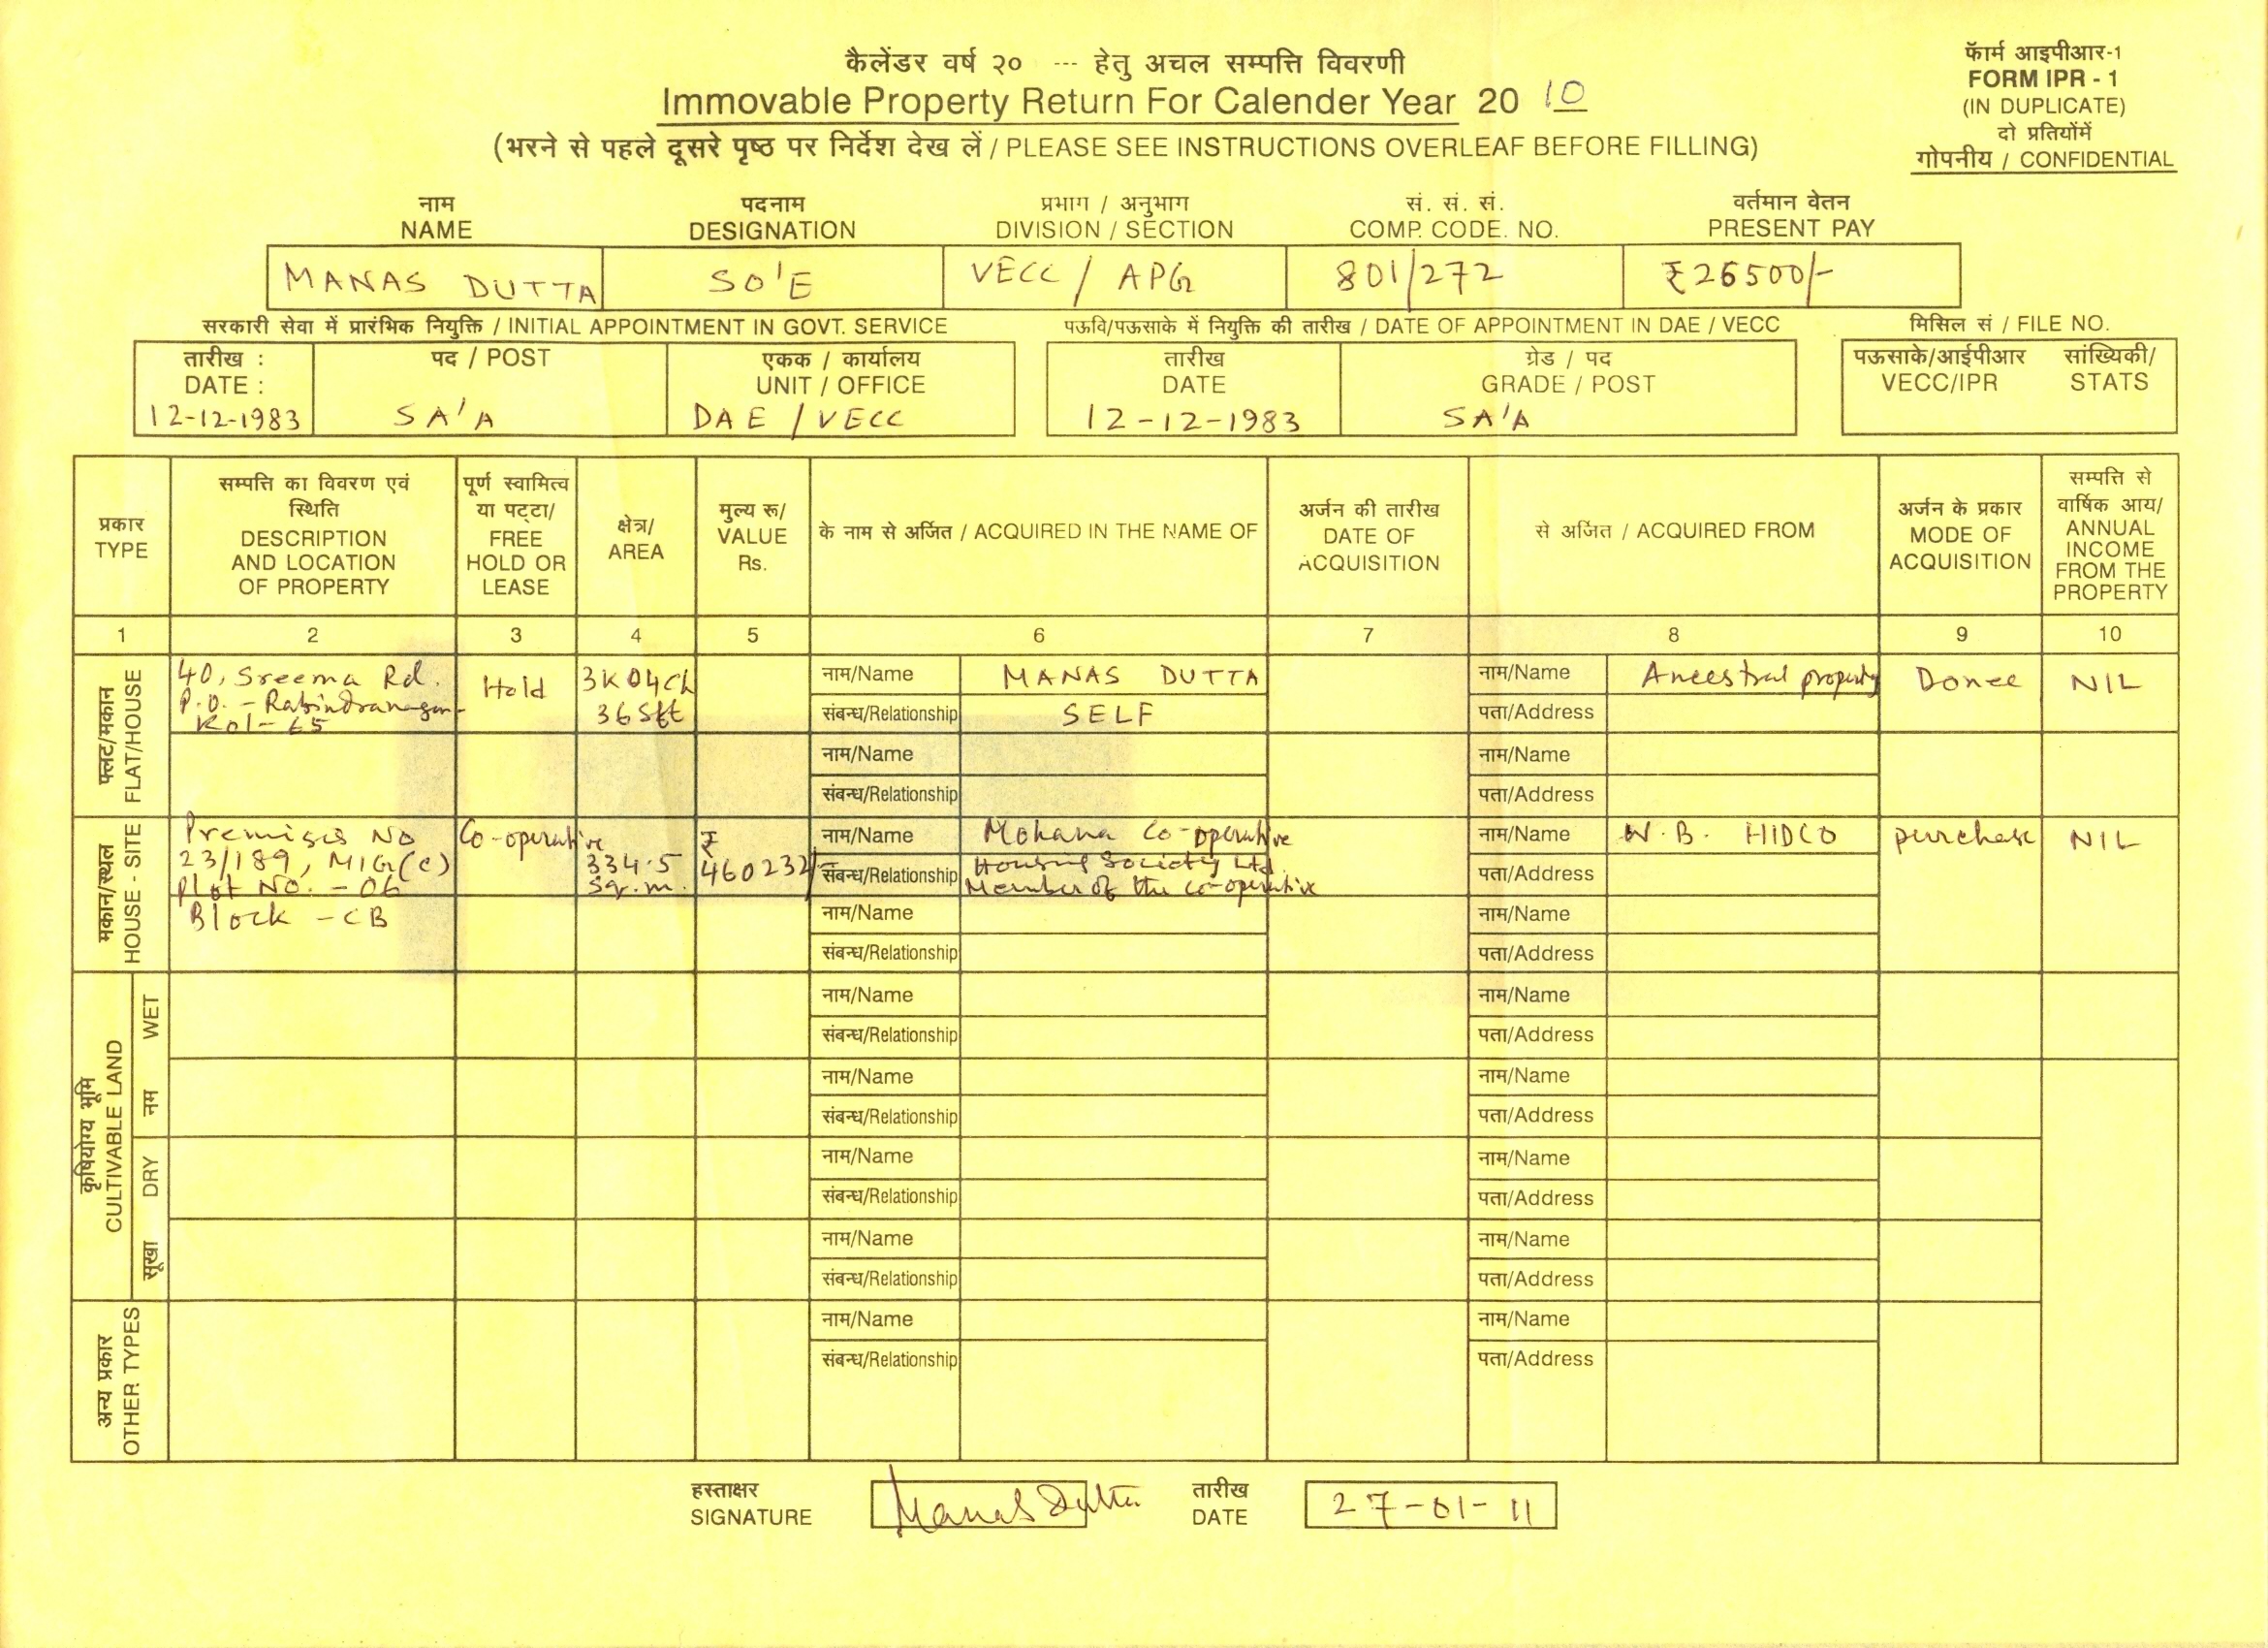 कैलेंडर वर्ष २० --- हेतु अचल सम्पत्ति विवरणी
Immovable Property Return For Calender Year 20 10
(भरने से पहले दूसरे पृष्ठ पर निर्देश देख लें / PLEASE SEE INSTRUCTIONS OVERLEAF BEFORE FILLING)
फॅार्म आइपीआर-1
FORM IPR - 1
(IN DUPLICATE)
दो प्रतियोंमें
गोपनीय / CONFIDENTIAL
नाम पदनाम प्रभाग / अनुभाग सं. सं. सं. वर्तमान वेतन
NAME DESIGNATION DIVISION / SECTION COMP. CODE. NO. PRESENT PAY
MANAS DUTTA SO'E VECC / APG 801/272 ₹26500/-
सरकारी सेवा में प्रारंभिक नियुक्ति / INITIAL APPOINTMENT IN GOVT. SERVICE पऊवि/पऊसाके में नियुक्ति की तारीख / DATE OF APPOINTMENT IN DAE / VECC मिसिल सं / FILE NO.
तारीख : पद / POST एकक / कार्यालय तारीख ग्रेड / पद पऊसाके/आईपीआर सांख्यिकी/
DATE : UNIT / OFFICE DATE GRADE / POST VECC/IPR STATS
12-12-1983 SA'A DAE / VECC 12-12-1983 SA'A
प्रकार
TYPE
सम्पत्ति का विवरण एवं
स्थिति
DESCRIPTION
AND LOCATION
OF PROPERTY
पूर्ण स्वामित्व
या पट्टा/
FREE
HOLD OR
LEASE
क्षेत्र/
AREA
मुल्य रू/
VALUE
Rs.
के नाम से अर्जित / ACQUIRED IN THE NAME OF
अर्जन की तारीख
DATE OF
ACQUISITION
से अर्जित / ACQUIRED FROM
अर्जन के प्रकार
MODE OF
ACQUISITION
सम्पत्ति से
वार्षिक आय/
ANNUAL
INCOME
FROM THE
PROPERTY
1 2 3 4 5 6 7 8 9 10
फ्लट/मकान
FLAT/HOUSE
40, Sreema Rd.
P.O. - Rabindranagar
Kol- 65
Hold
3K 04ch
36 Sft
नाम/Name MANAS DUTTA
संबन्ध/Relationship SELF
नाम/Name Ancestral property
पता/Address
Donee
NIL
नाम/Name
संबन्ध/Relationship
नाम/Name
पता/Address
मकान/स्थल
HOUSE - SITE
Premises No
23/189, MIG(C)
Plot No. - 06
Block - CB
Co-operative
334.5
Sq.m.
₹
460232/
नाम/Name Mohana Co-operative
Housing Society Ltd.
संबन्ध/Relationship Member of the co-operative
नाम/Name W.B. HIDCO
पता/Address
purchase
NIL
नाम/Name
संबन्ध/Relationship
नाम/Name
पता/Address
कृषियोग्य भूमि
CULTIVABLE LAND
नम WET
नाम/Name नाम/Name
संबन्ध/Relationship पता/Address
नाम/Name नाम/Name
संबन्ध/Relationship पता/Address
सूखा DRY
नाम/Name नाम/Name
संबन्ध/Relationship पता/Address
नाम/Name नाम/Name
संबन्ध/Relationship पता/Address
अन्य प्रकार
OTHER TYPES
नाम/Name नाम/Name
संबन्ध/Relationship पता/Address
हस्ताक्षर तारीख
SIGNATURE Manas Dutta DATE 27-01-11